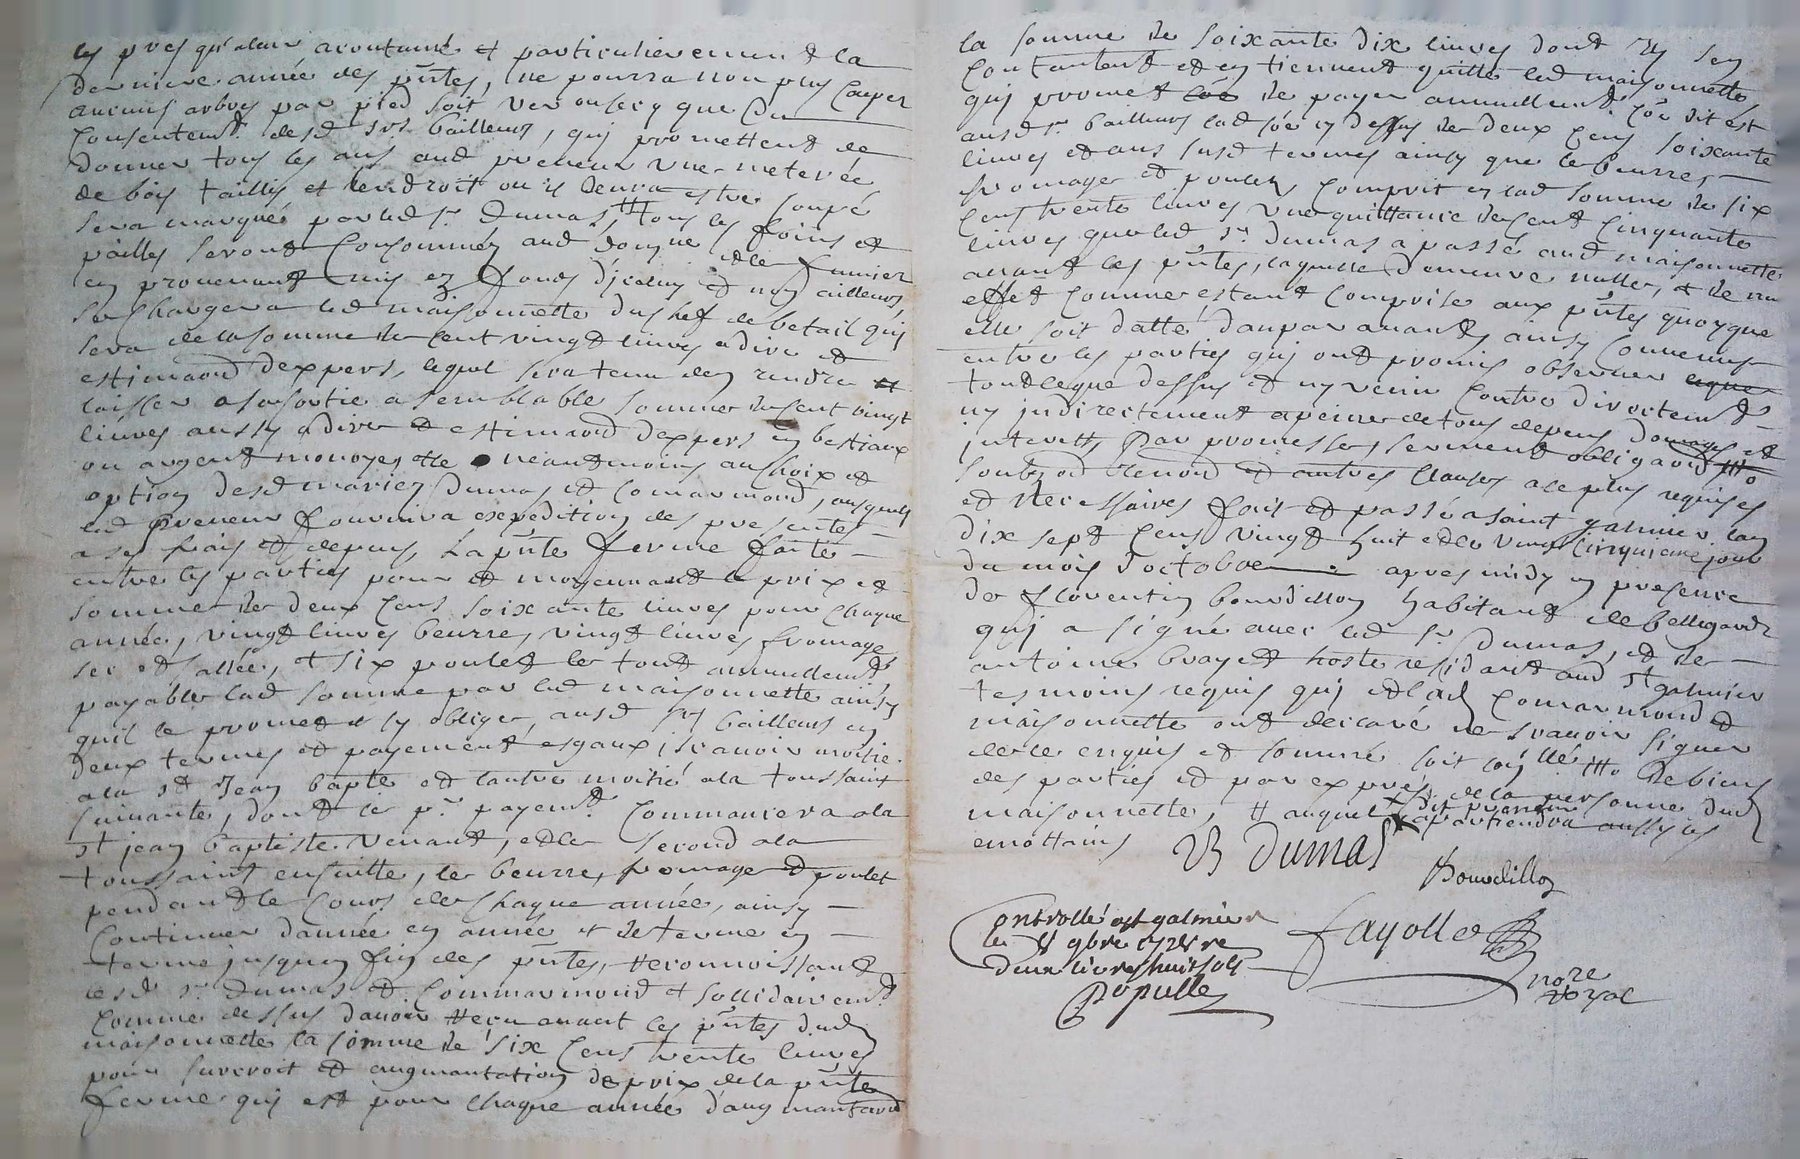 les prés qu'alau acoutumé et particulierement la
derniere année des pntes, ne pourra non plus couper
aucuns arbres par pied soit verou secq que du
consentemt desd srs bailleurs, qui promettent de
donner tous les ans aud preneur une meterée
de bois taillis et lendroit ou il devra estre coupé
sera marqué par led sr Dumas, ttt tous les foins et
pailles seront consommés aud domaine et le fumier
en provenant mis ez fonds diceluy et non ailleurs,
se chargera led maisonnette du chef de betail quy
sera de la somme de cent vingt livres a dire et
estimaon dexpers, lequel sera tenu den rendre et
laisser a sa sortie a semblable somme de cent vingt
livres aussy a dire et estimaon dexpers en bestiaux
ou argent monoyes, le neantmoins au choix et
option desd mariez Dumas et Comarmond, ausquels
led preneur fournira expedition des presentes
a ses frais et depens, La pnte ferme faite
entre les parties pour et moyennant le prix et
somme de deux cens soixante livres pour chaque
année, vingt livres beurre, vingt livres fromage
sec et sallée, et six poulets le tout annuellemt
payable lad somme par led maisonnette ainsy
quil le promet et sy oblige, ausd srs bailleurs en
deux termes et payement esgaux, scavoir moitié
a la st Jean bapte et lautre moitié a la toussaint
suivante, dont le pr payemt commancera a la
st jean baptiste venant, et le second a la
toussaint ensuitte, le beurre, fromage et poulet
pendant le cours de chaque année, ainsy
continuer dannée en année et de terme en
terme jusqu'en fin des pntes, Reconnoissant
lesd sr Dumas et Commarmond et sollidairemt
comme dessus davoir Receu avant les pntes dud
maisonnette la somme de six cens trente livres
pour surcroit et augmantation de prix de la pnte
ferme qui est pour chaque année d'augmantaon
la somme de soixante dix livres dont ils sen
contantent et en tiennent quitte led maisonnette,
qui promet de payer annuellemt co͞e dit est
ausd srs bailleurs lad so͞e cy dessus de deux cens soixante
livres et aux susd termes ainsy que le beurre,
fromages et poulets, compris en lad somme de six
cens trente livres une quittance de cent cinquante
livres que led sr Dumas a passé aud maisonnette
avant les pntes, laquelle demeure nulle, et de nul
effet comme estant comprise aux pntes quoyque
elle soit dattée dauparavant, ainsy convenus
entre les parties qui ont promis observer
tout ce que dessus et ny venir contre directemt
ny indirectement a peine de tous depens domages et
interetts, Par promesses serment obligaons
soubz on Renon et autres clauses a ce plus requises
et necessaires fait et passé a saint galmier lan
dix sept cens vingt huit et le vingt cinquieme jour
du mois d'octobre apres midy en presence
de florentin bourdillon habitant de bellegarde
qui a signé avec led sr Dumas, et de
antoine brayet hoste residant aud st galmier
tesmoins requis qui et lad Comarmond et
maisonnette ont declaré ne scavoir signer
de ce enquis et sommé soit co͞llé ttt de biens
des parties et par exprés de la personne dud
maisonnette, tt auquel dit preneur
apartiendra aussy les
emottains
B Dumas
Bourdillon
Controllé a st galmier
le 9bre 1728 re
deux livres huit sols
Populle
fayolle
nore
royal